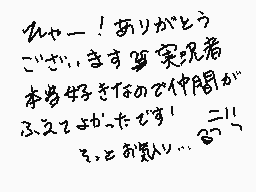 ひゃー！ありがとう
ございます 実況者
本当好きなので仲間が
ふえてよかったです!
そっとお気入り...